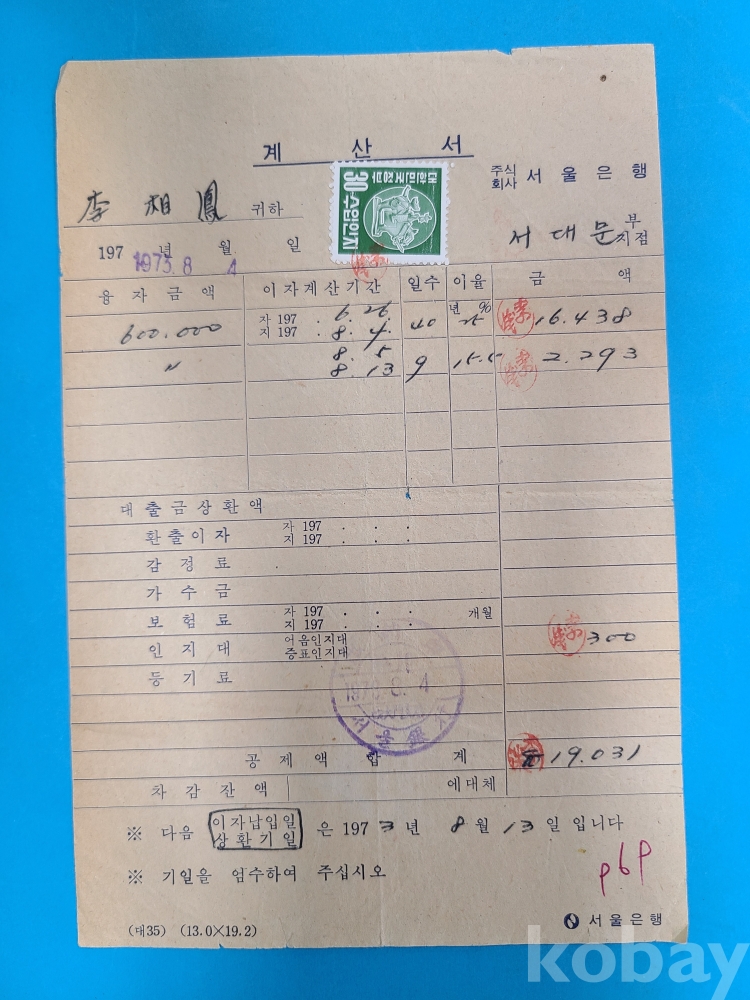 계 산 서
주식회사 서울은행
李相鳳 귀하
대한민국정부
30 수입인지
서대문 부 지점
197 년 월 일
1973.8 4
융자금액 이자계산기간 일수 이율 금 액
600.000 자 197 . 6. 26 40 년 % 16.438
지 197 . 8. 4.
〃 8. 5 9 15.5 2.293
8. 13
대출금상환액
환출이자 자 197 . . .
지 197 . . .
감정료
가수금
보험료 자 197 . . . 개월
지 197 . . .
인지대 어음인지대 300
증표인지대
등기료
8. 4
공제액합계 19.031
차감잔액 에대체
※ 다음 이자납입일 상환기일 은 1973년 8월 13일 입니다
※ 기일을 엄수하여 주십시오
(대35) (13.0×19.2)
서울은행
kobay